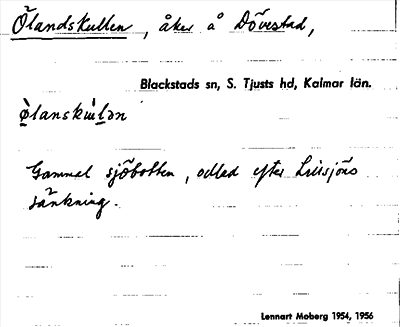 Ölandskullen, åker å Dövestad,
Blackstads sn, S. Tjusts hd, Kalmar län.
ø̀lanskùlən
Gammal sjöbotten, odlad efter Lillsjöns
sänkning.
Lennart Moberg 1954, 1956